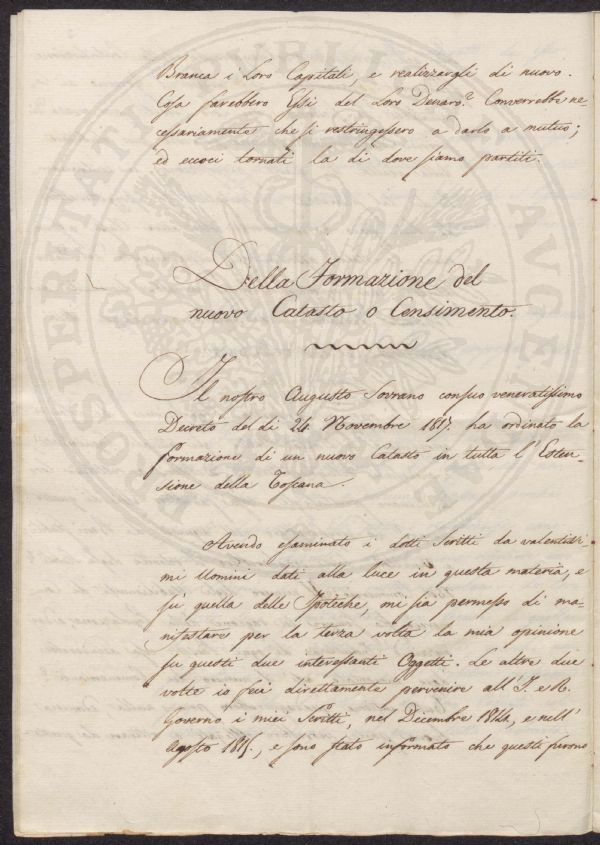 Branca i Loro Capitali, e realizzargli di nuovo.
Cosa farebbero Essi del Loro Denaro? Converrebbe ne-
cessariamente che si restringessero a darlo a mutuo;
ed eccoci tornati la di dove siamo partiti.
Della Formazione del
nuovo Catasto o Censimento.
Il nostro Augusto Sovrano con suo veneratissimo
Decreto del dì 24 Novembre 1817. ha ordinato la
formazione di un nuovo Catasto in tutta l'Esten-
sione della Toscana.
Avendo esaminato i dotti Scritti da valentissi-
mi Uomini dati alla luce in questa materia, e
su quella delle Ipoteche, mi sia permesso di ma-
nifestare per la terza volta la mia opinione
su questi due interessanti Oggetti. Le altre due
volte io feci direttamente pervenire all'I. e R.
Governo i miei Scritti, nel Decembre 1814, e nell'
Agosto 1815., e sono stato informato che questi furono
PROSPERITATI PUBLICAE AUGE